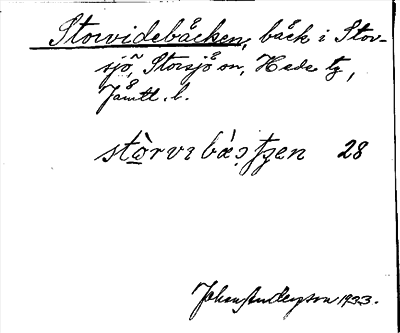 Storvidebäcken, bäck i Stor-
sjö, Storsjö sn, Hede tg,
Jämtl. l.
stòrvɩ bàɔ̨tʒen 28
Johan Anderzson 1933.